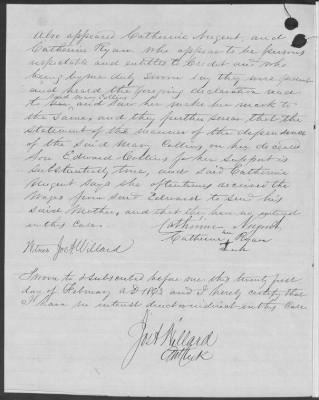 Also appeared Catherine Nugent, and
Catherine Ryan who appear to be persons
respectable and entitled to Credit and who
being by me duly Sworn say they were present
and heard the foregoing declaration read
to and saw her make her mark to
the Same, and they further swear that the
statement of the manner of the dependence
of the Said Mary Collins, on her deceased
Son Edward Collins for her support is
Substantially true, and said Catherine
Nugent Says she oftentimes received the
Wages from said Edward to send his
Said Mother, and that she has no interest
in this Case.
Catherine Nugent
Catherine Ryan
Witness Jos A Willard
Sworn to & subscribed before me this twenty first
day of February A D 1863 and I hereby certify that
I have no interest direct or indirect in this Case
Jos A Willard
Clerk